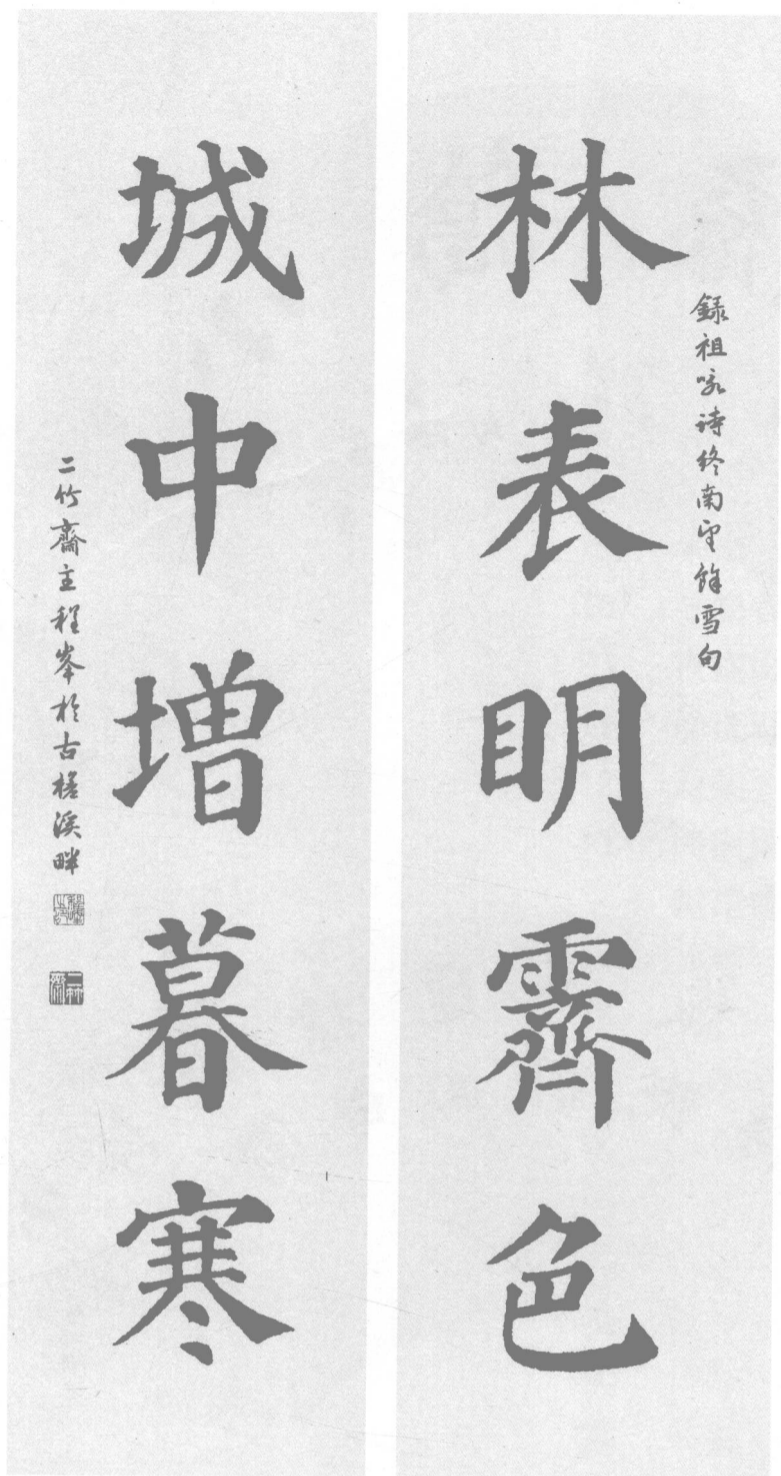 林表明霽色
錄祖咏詩終南望餘雪句
城中增暮寒
二竹齋主程峯於古槎溪畔